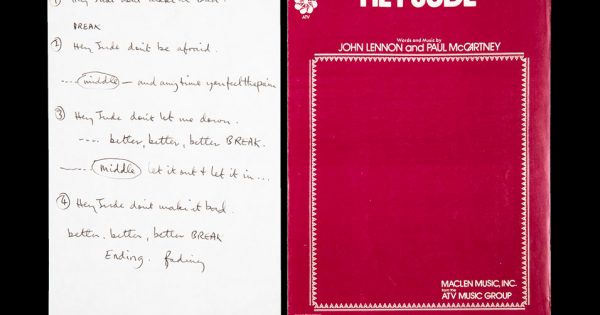 ① Hey Jude don't make it bad.
BREAK
② Hey Jude don't be afraid.
..... middle — and any time you feel the pain
③ Hey Jude don't let me down.
.... better, better, better BREAK.
..... middle let it out & let it in...
④ Hey Jude dont make it bad.
better, better, better BREAK
Ending. fading
HEY JUDE
ATV
Words and Music by
JOHN LENNON and PAUL McCARTNEY
MACLEN MUSIC, INC.
from the
ATV MUSIC GROUP